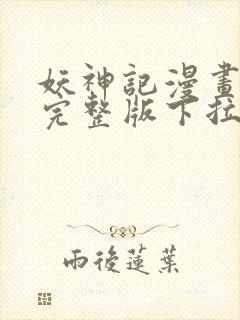 妖神記漫畫
完整版下拉
雨後蓮葉